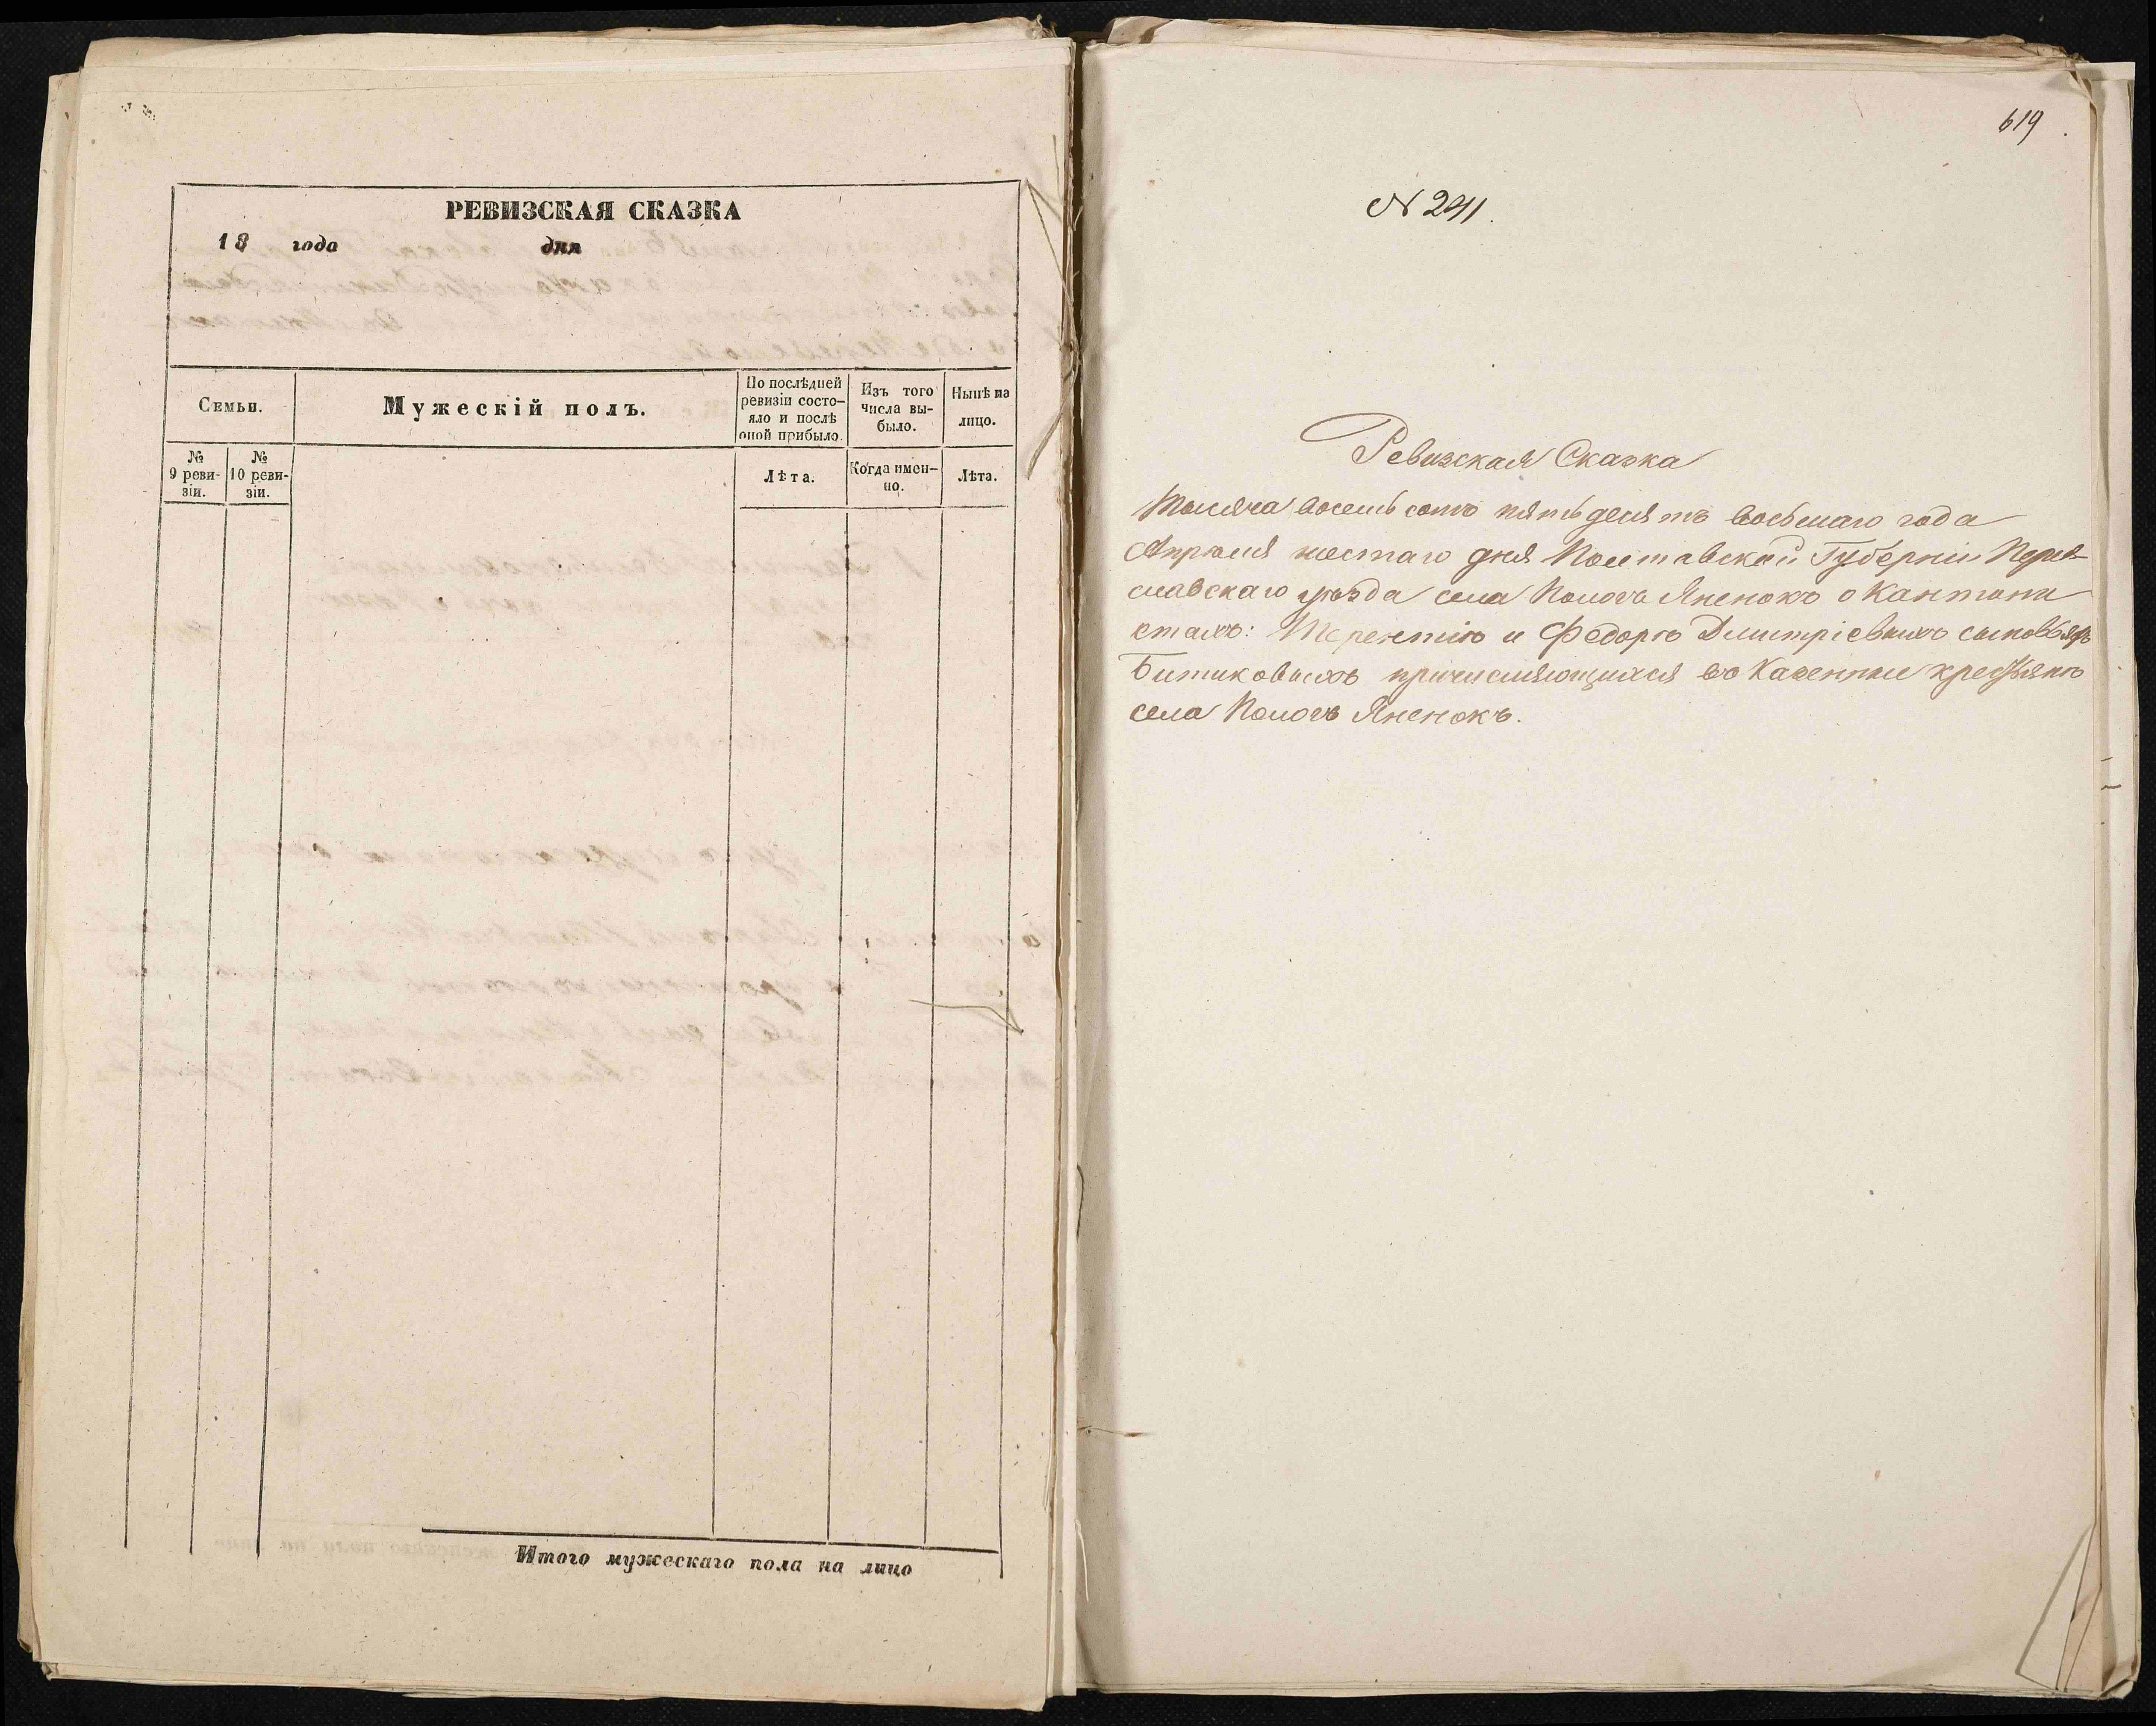 РЕВИЗСКАЯ СКАЗКА
18 года дня
Семьи.
Мужескій полъ.
По послѣдней
ревизіи состо-
яло и послѣ
оной прибыло.
Изъ того
числа вы-
было.
Нынѣ на
лицо.
№
9 реви-
зіи.
№
10 реви-
зіи.
Лѣта.
Когда имен-
но.
Лѣта.
Итого мужескаго пола на лицо
619
№ 291.
Ревизская Сказка
Тысяча восемь сотъ пятьдесятъ восьмаго года
Апрѣля шестаго дня Полтавской Губерніи Перея-
славскаго уѣзда села Пологъ Яненокъ о Кантони
стахъ: Терентію и Федорѣ Дмитріевыхъ сыновьяхъ
Битиковыхъ причисляющихся въ Казенные крестьяне
села Пологъ Яненокъ.